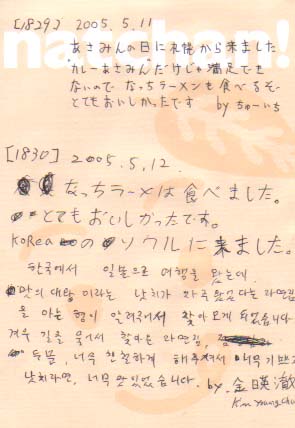 [1829] 2005.5.11
natchan!
あさみんの日に札幌から来ました
"カレーあさみん"だけじゃ満足でき
ないので なっちラーメンも食べるぞー
とてもおいしかったです by ちゅーいち
[1830] 2005.5.12.
なっちラーメンは食べました。
とてもおいしかったです。
KoRea の ソウルに来ました。
한국에서 일본으로 여행을 왔는데
맛의 대왕 이라는 낫치가 자주 왔었다는 라면집
을 아는 형이 알려줘서 찾아오게 되었습니다
겨우 길을 물어서 찾아온 라면집,
두분, 너무 친절하게 해주셔서 너무 기쁘고
낫치라면, 너무 맛있었습니다. by. 金暎澈
Kim Young Chul